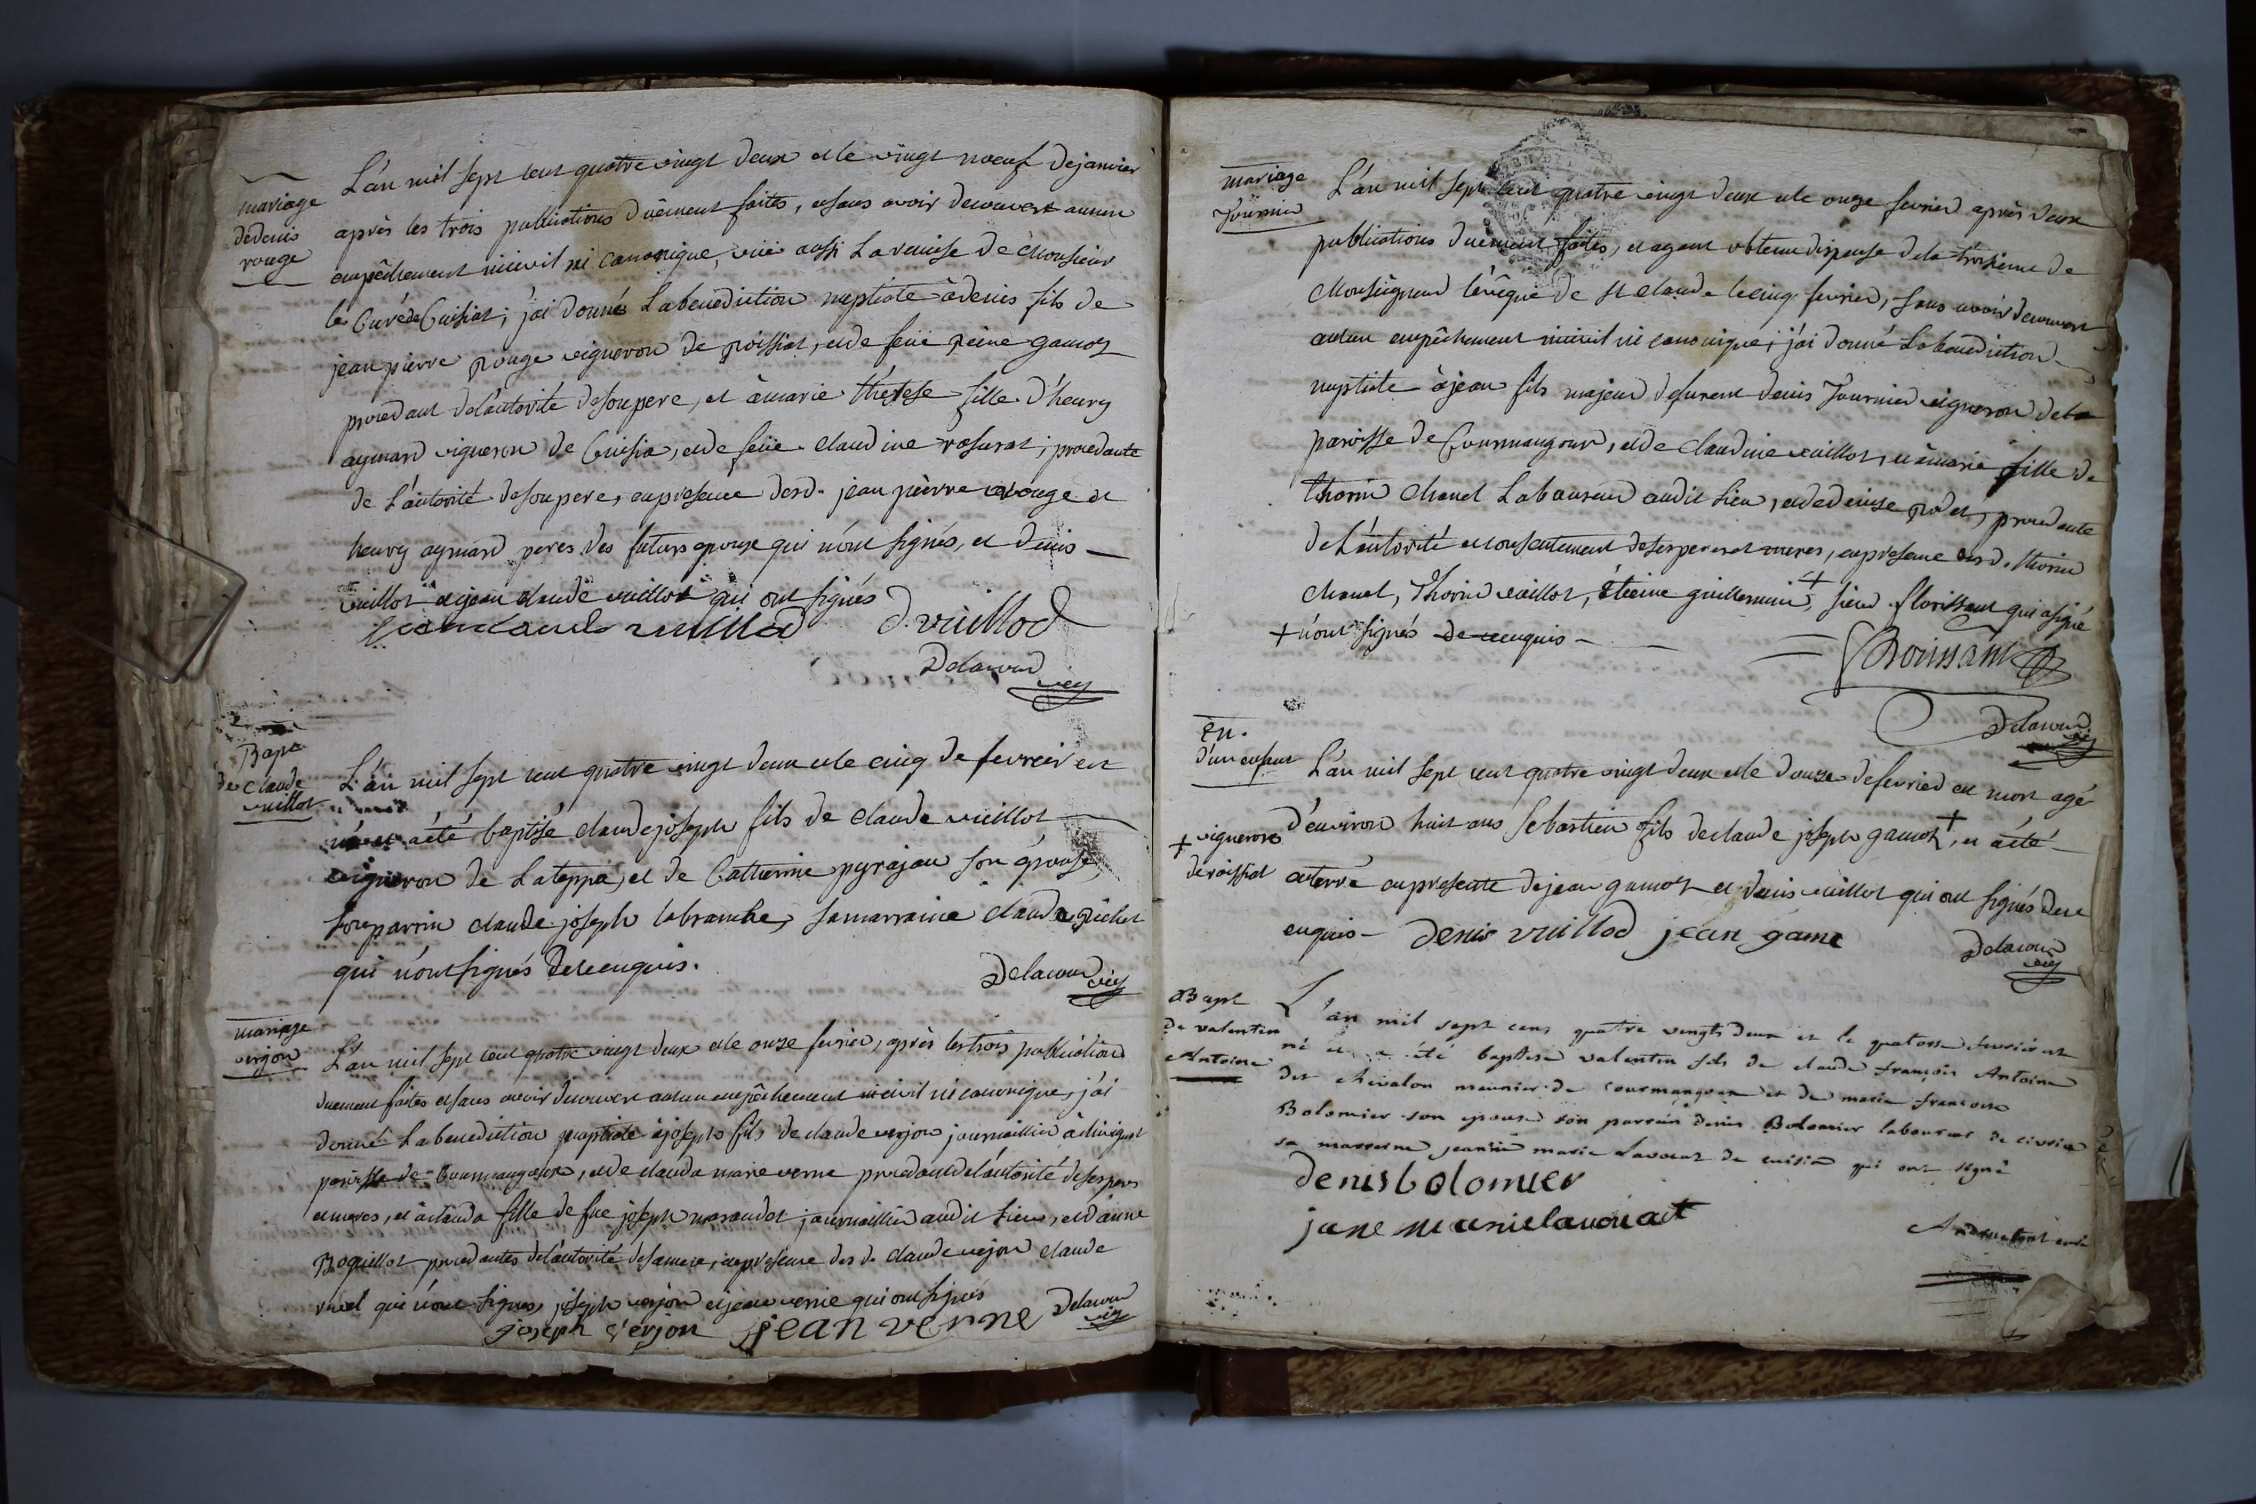 mariage
de denis
rouge
L'an mil sept cent quatre vingt deux et le vingt noeuf de janvier
après les trois publications duëment faites, et sans avoir decouvert aucun
empêchement ni civil ni canonique, vüe aussi la remise de Monsieur
le Curé de Cuisiat; j'ai donné la benediction nuptiale à denis fils de
jean pierre rouge vigneron de roissiat, et de feüe reine gamoz
procedant de l'autorité de son pere, et à marie thérese fille d'henry
aymard vigneron de Cuisia, et de feüe claudine rosurat; procedante
de l'autorité de son pere, en presence desd. jean pièrre rouge et
henry aymard peres des futurs epoux qui n'ont signés, et denis
vuillot et jean claude vuillot qui ont signés
jean claude vuillod D. vuillod
Delacour
vic
Bapt
de claude
vuillot
L'an mil sept cent quatre vingt deux et le cinq de fevrier est
né et a été baptisé claude joseph fils de claude vuillot
vigneron de lateppe, et de Catherine pyrajan son épouse
son parrin claude joseph labranche, sa marraine claude richet
qui n'ont signés de ce enquis.
Delacour
vic
mariage
verjon
L'an mil sept cent quatre vingt deux et le onze fevrier, après les trois publications
duement faites et sans avoir decouvert aucun empêchement ni civil ni canonique, j'ai
donné la benediction nuptiale à joseph fils de claude verjon journaillier à
paroisse de Courmangoux, et de claude marie verne procedant de l'autorité de ses peres
et meres, et à claude fille de feu joseph maraudot journaillier audit lieu, et d'anne
Boquillot procedantes de l'autorité de sa mere, en presence des d. claude verjon claude
ruel qui n'ont signés, joseph verjon et jean verne qui ont signés
joseph verjon jean verne Delacour
vic
mariage
fournier
L'an mil sept cent quatre vingt deux et le onze fevrier après deux
publications duement faites, et ayant obtenu dispense de la troisieme de
Monseigneur l'evêque de st claude le cinq fevrier, sans avoir decouvert
aucun empêchement ni civil ni canonique; j'ai donné la benediction
nuptiale à jean fils majeur de furent denis fournier vigneron de la
paroisse de Courmangoux, et de claudine vuillot, et à marie fille de
thorin chanel laboureur audit lieu, et de denise rodet, procedante
de l'autorité et consentement de ses peres et meres, en presence des d. thorin
chanel, thorin vuillot, étiene guillermin +, sieur florissant qui a signé
+ n'ont signés de ce enquis
Delacour
vic
En.
d'un enfant
L'an mil sept cent quatre vingt deux et le douze de fevrier est mort agé
d'environ huit ans sebastien fils de claude joseph gamoz +, et a été
+ vigneron
de roissiat
enterré en presente de jean gamoz et denis vuillot qui ont signés de ce
enquis denis vuillod jean game
Delacour
vic
Bapt
de valentin
Antoine
L'an mil sept cens quatre vingts deux et le quatorse fevrier est
né et a été baptisé valentin fils de claude françois Antoine
dit chevalon meunier de courmangoux et de marie francoise
Bolomier son epouse son parrain denis Bolomier laboureur de civria
sa marraine jeanne marie Lavoırat de cuisia qui ont signé
denis bolomier
jane marie lavoirait